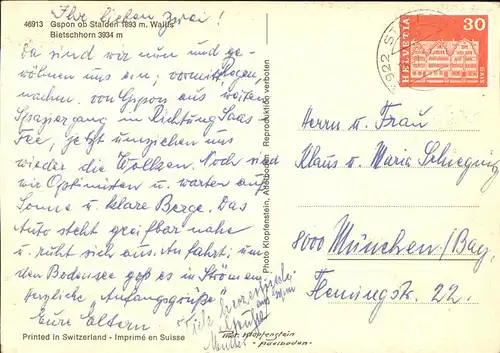 46913 Gspon ob Stalden 1893 m. Wallis
Bietschhorn 3934 m
Ihr lieben zwei!
Da sind wir nun und ge-
wöhnen uns ein; vormittag Regen,
nachm. von Gspon aus weiten
Spaziergang in Richtung Saas
Fee, jetzt umziehen uns
wieder die Wolken. Noch sind
wir Optimisten u. warten auf
Sonne u. klare Berge. Das
Auto steht greifbar nahe
u. ruht sich aus. Anfahrt; um
den Bodensee goß es in Strömen.
Herzliche „Anfangsgrüße“
Eure Eltern
Viele
Grüße
Printed in Switzerland - Imprimé en Suisse
Photo Klopfenstein, Adelboden. Reproduktion verboten
Phot. Klopfenstein
Adelboden
HELVETIA
30
3922 ST
Herrn u. Frau
Klaus u. Maria
8000 München/Bay.
Flemingstr. 22.